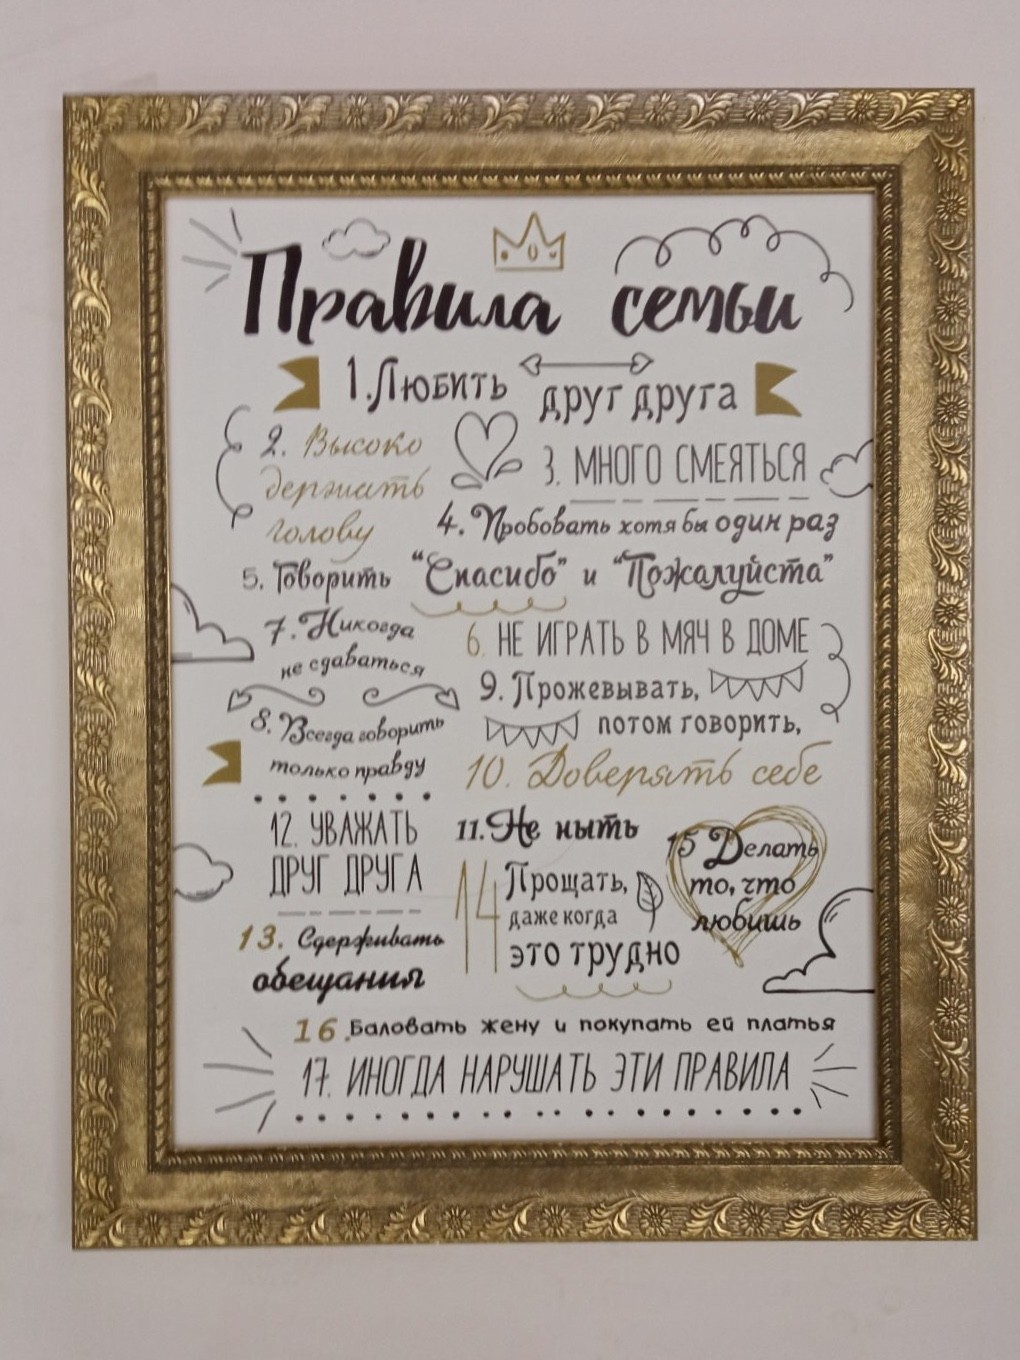 Правила семьи
1. Любить друг друга
2. Высоко
держать
голову
3. МНОГО СМЕЯТЬСЯ
4. Пробовать хотя бы один раз
5. Говорить "Спасибо" и "Пожалуйста"
6. НЕ ИГРАТЬ В МЯЧ В ДОМЕ
7. Никогда
не сдаваться
8. Всегда говорить
только правду
9. Прожевывать,
потом говорить,
10. Доверять себе
11. Не ныть
12. УВАЖАТЬ
ДРУГ ДРУГА
13. Сдерживать
обещания
14 Прощать,
даже когда
это трудно
15 Делать
то, что
любишь
16. Баловать жену и покупать ей платья
17. ИНОГДА НАРУШАТЬ ЭТИ ПРАВИЛА